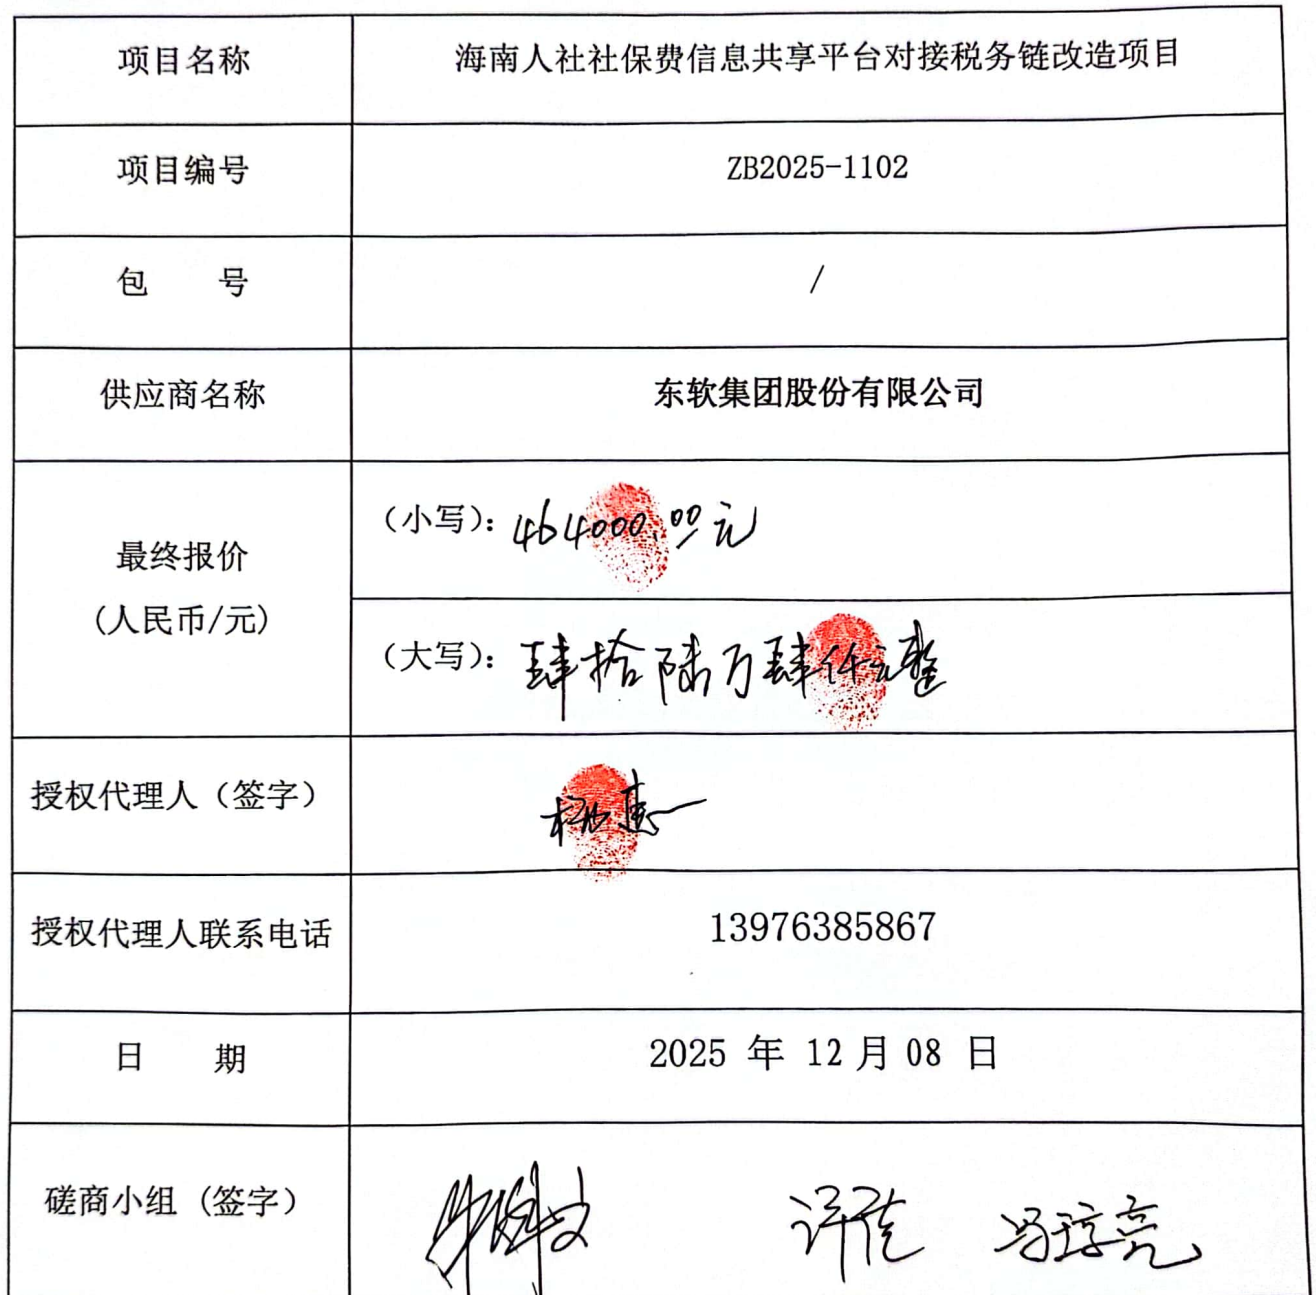 项目名称 海南人社社保费信息共享平台对接税务链改造项目
项目编号 ZB2025-1102
包 号 /
供应商名称 东软集团股份有限公司
最终报价
(人民币/元)
（小写）：464000.00元
（大写）：肆拾陆万肆仟元整
授权代理人（签字）
授权代理人联系电话 13976385867
日 期 2025 年 12月 08 日
磋商小组 (签字） 冯琼亮